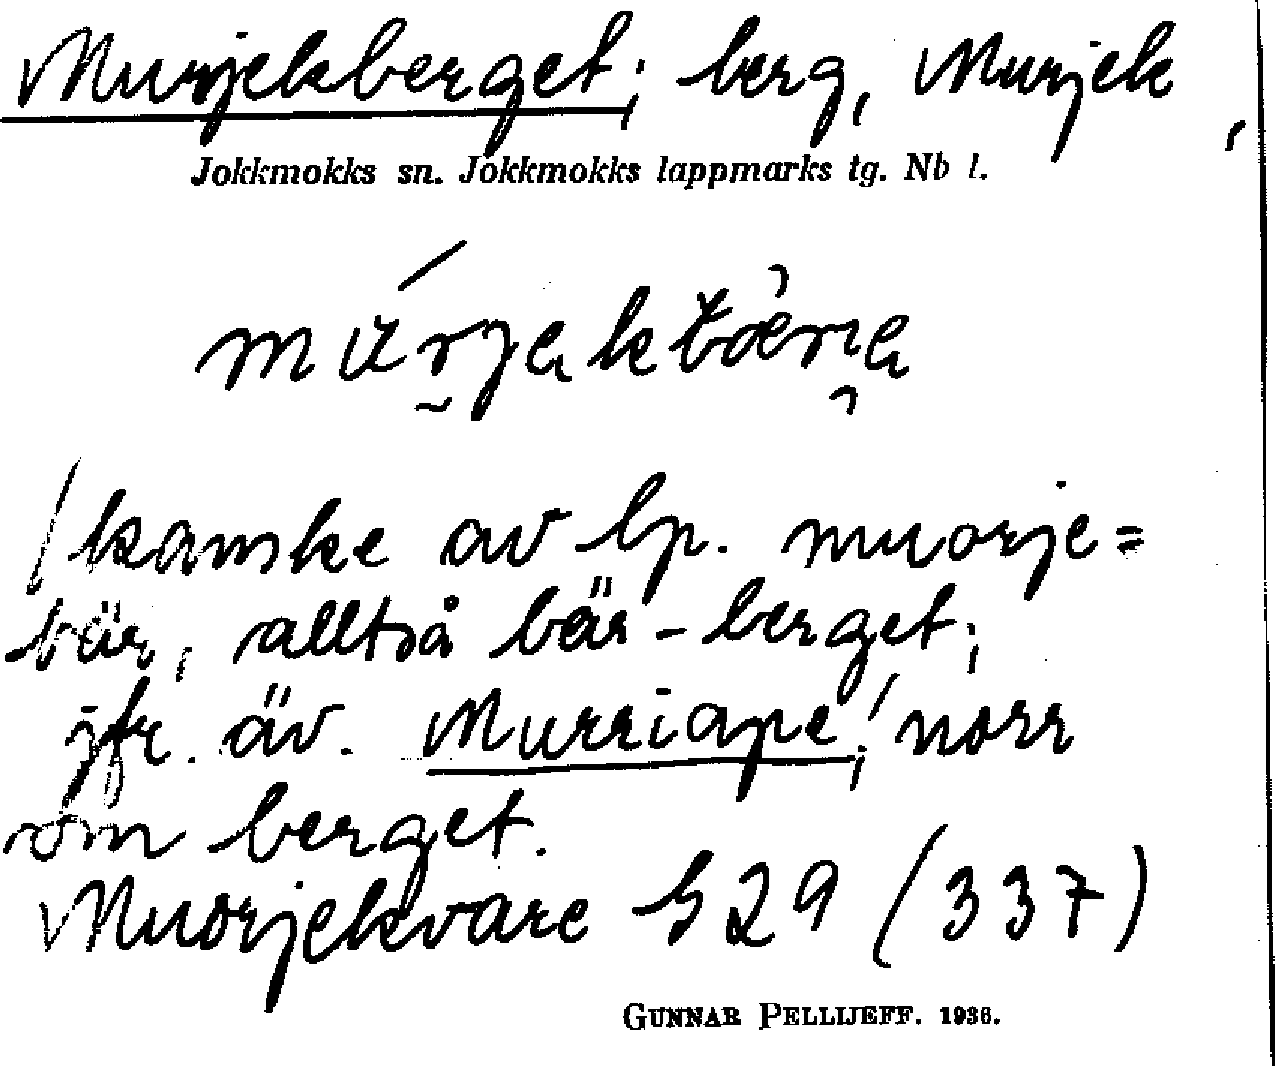 Murjekberget; berg, Murjek,
Jokkmokks sn. Jokkmokks lappmarks tg. Nb l.
/kanske av lp. muorje =
bär, alltså bär-berget;
jfr. äv. Murriape!; norr
om berget.
Muorjekvare S 29 (337)
GUNNAR PELLIJEFF. 1936.